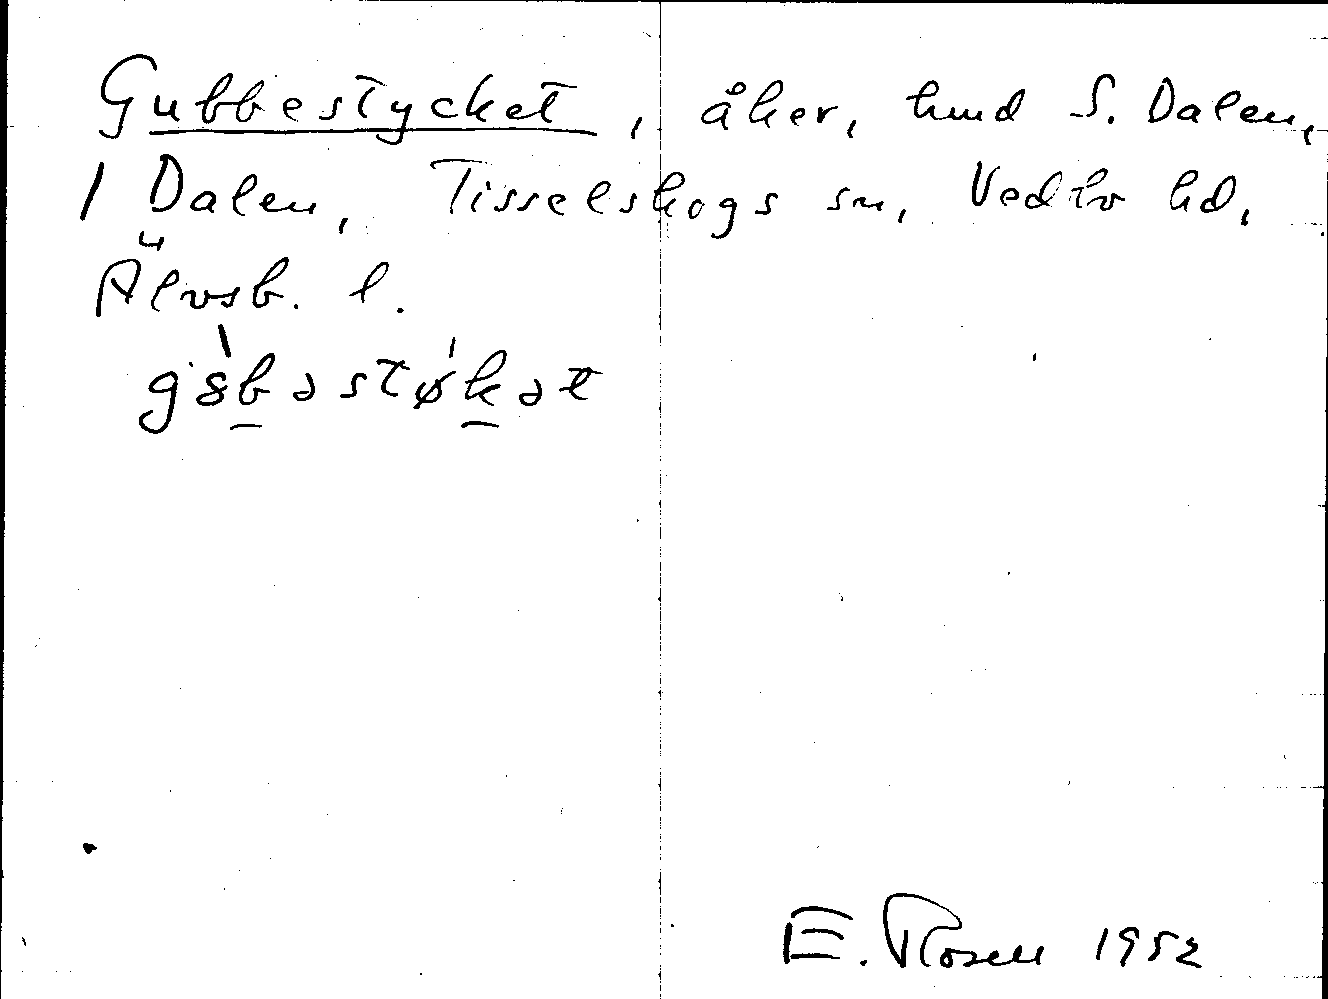 Gubbestycket, åker, hmd S. Dalen,
1 Dalen, Tisselskogs sn, Vedbo hd,
Älvsb. l.
g8̀bəstǿkət
E. Rosell 1952